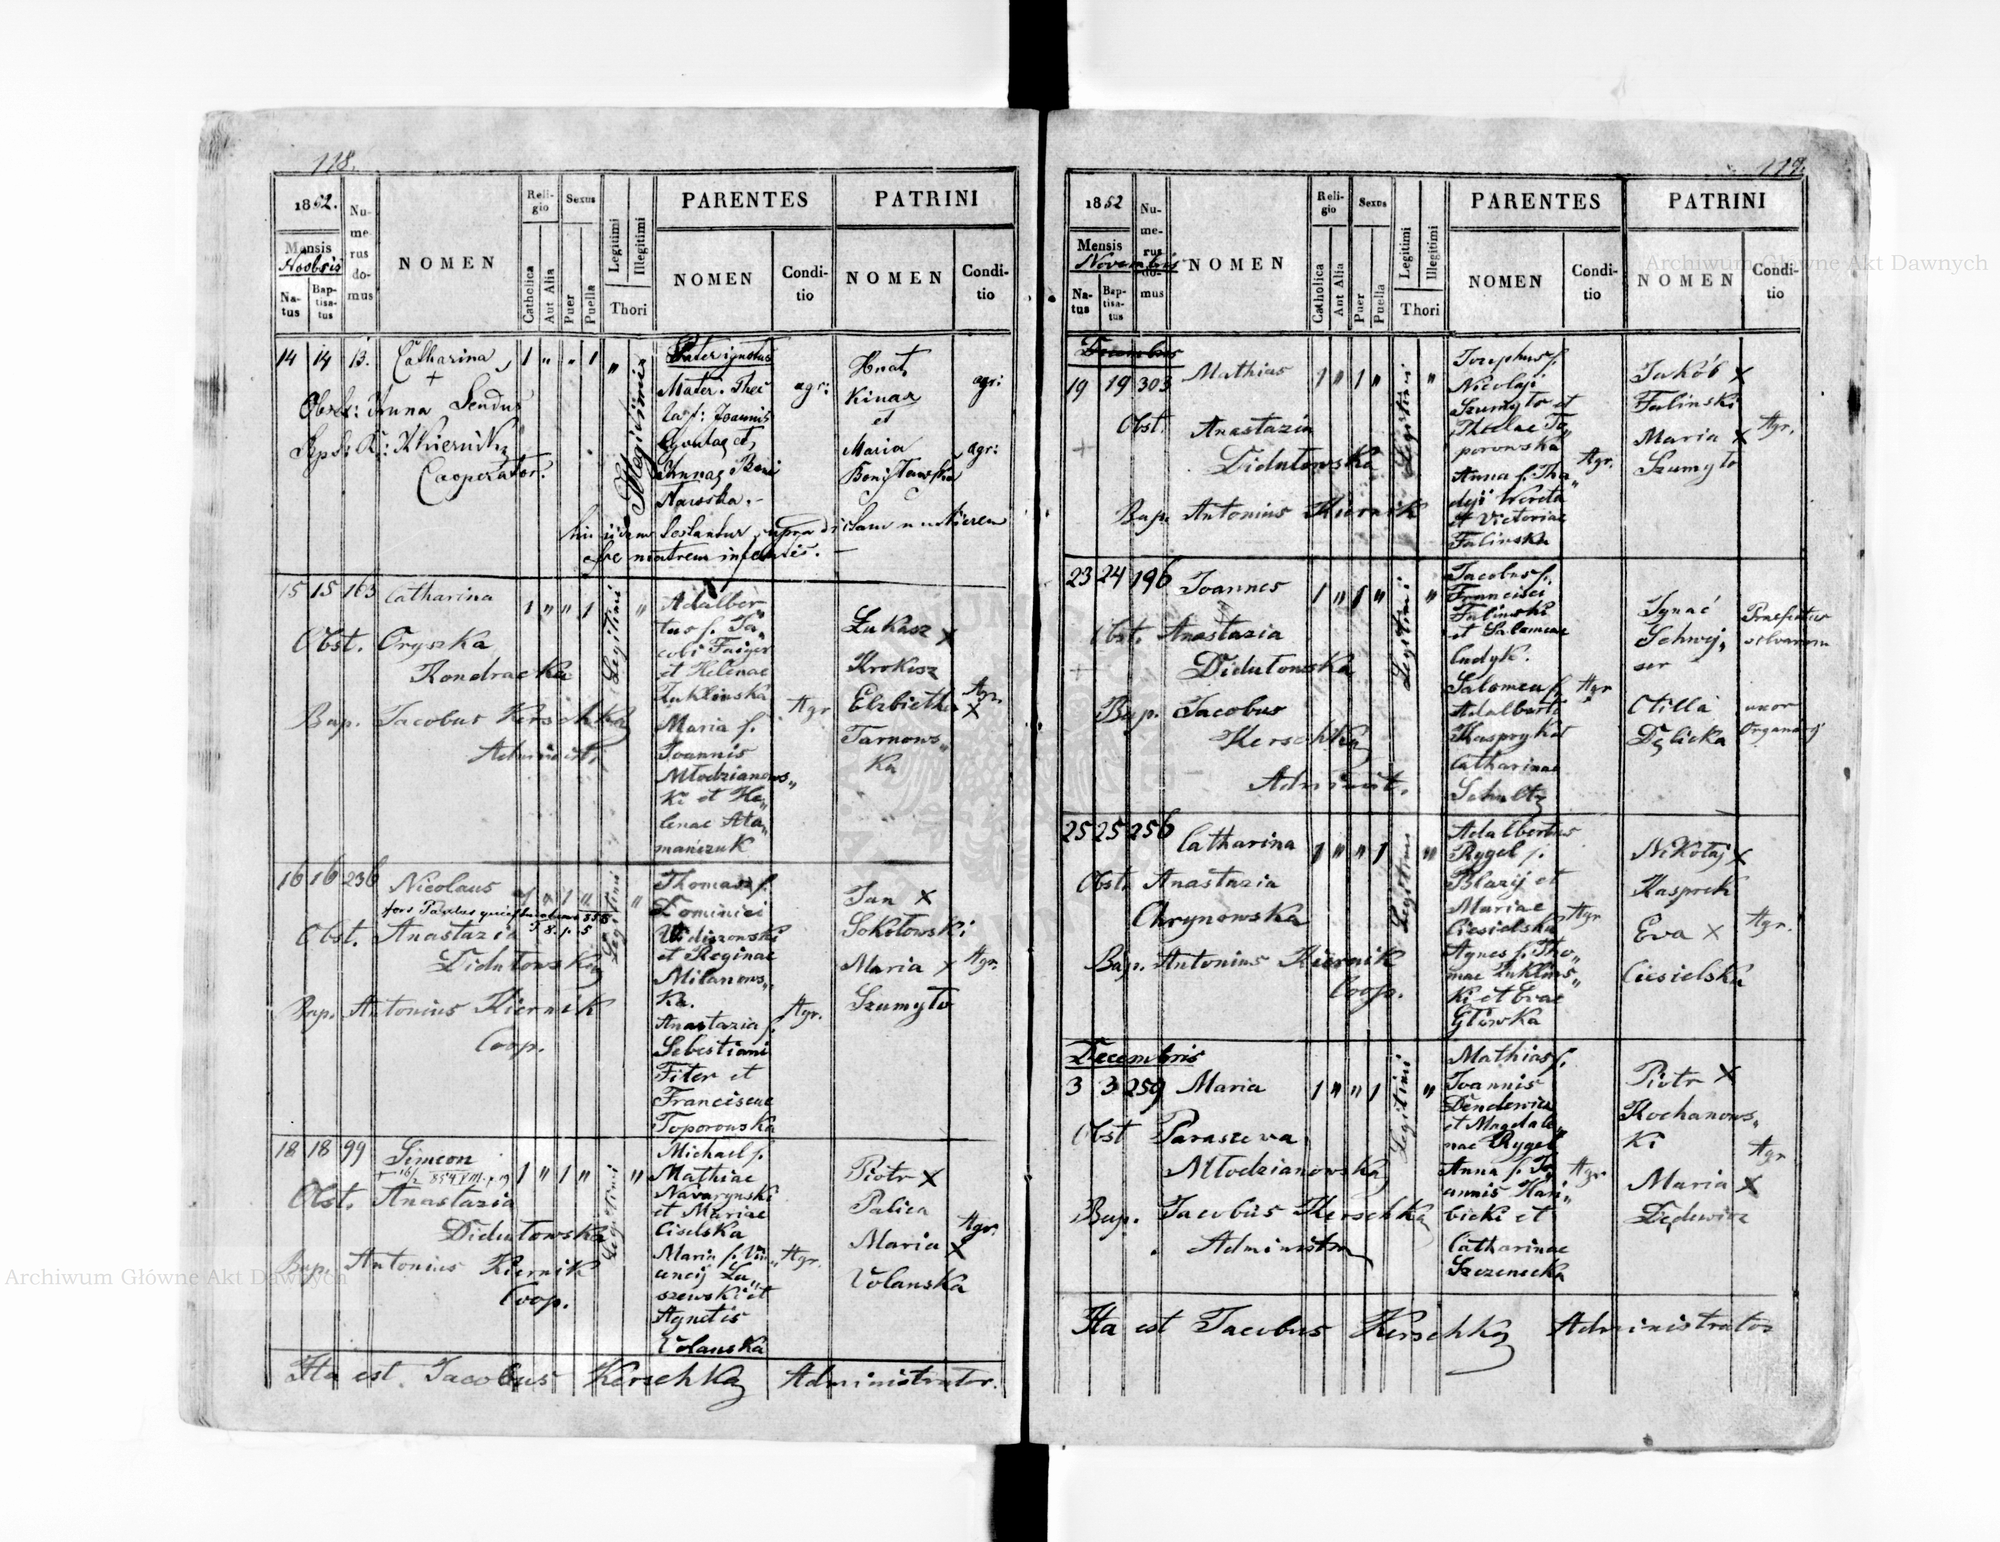 118.
1852.
Mensis
Novbris
Na-
tus
Bap-
tisa-
tus
Nu-
me-
rus
do-
mus
NOMEN
Reli-
gio
Catholica
Aut Alia
Sexus
Puer
Puella
Legitimi
Illegitimi
Thori
PARENTES
NOMEN
Condi-
tio
PATRINI
NOMEN
Condi-
tio
14 14 13. Catharina 1 " " 1 "
Illegitimi
Obst: Anna Sendus
Bapt: A: Kiernik
Cooperator.
Pater ignotus
Mater. Thec
la f: Joannis
et
Annae
agr:
Hnat
Kinaz
et
Maria
agr:
agr:
matrem infantis. —
15 15 163 Catharina 1 " " 1 Legitimi "
Obst. Oryszka
Kondracka
Bap. Jacobus Kerschka
Administr.
Adalber„
tus f. Ja„
cobi Faiger
et Helenae
Luklinska
Maria f.
Joannis
Młodzianows„
ki et He„
lenae Ata„
mańczuk
Agr
Łukasz x
Krokosz
Elzbietha x
Tarnows„
ka
Agr.
16 16 236 Nicolaus 1 " 1 " Legitimi "
Obst. Anastazia
Didutowska
Bap. Antonius Kiernik
Coop.
Thomas f.
Dominici
et Reginae
Milanows„
ka.
Anastazia f.
Sebestiani
Fiter et
Franciscae
Toporowska
Agr.
Jan x
Sokołowski
Maria x
Szumyło
Agr.
18 18 99 Simeon 1 " 1 " Legitimi "
Obst. Anastazia
Didutowska
Bap. Antonius Kiernik
Coop.
Michael f.
Mathiae
Navarynski
et Mariae
Ciselska
Maria f. Vin„
cencij La„
szewski et
Agnetis
Volanska
Agr.
Piotr x
Palica
Maria x
Volanska
Agr.
Ita est Jacobus Kerschka Administrator.
119.
1852
Mensis
Novembris
Na-
tus
Bap-
tisa-
tus
Nu-
me-
rus
do-
mus
NOMEN
Reli-
gio
Catholica
Aut Alia
Sexus
Puer
Puella
Legitimi
Illegitimi
Thori
PARENTES
NOMEN
Condi-
tio
PATRINI
NOMEN
Condi-
tio
19 19 303 Mathias 1 " 1 " Legitimi "
Obst. Anastazia
Didutowska
Bap. Antonius Kiernik
Josephus f.
Nicolaji
Szumyło et
Theclae To„
porowska
Anna f. Tha„
deji Wereta
et Victoriae
Falinska
Agr.
Jakób x
Falinski
Maria x
Szumyło
Agr.
23 24 196 Joannes 1 " 1 " Legitimi "
Obst. Anastazia
Didutowska
Bap. Jacobus
Kerschka
Administ.
Jacobus f.
Francisci
Falinski
et Salomeae
Indyk.
Salomea f.
Adalberti
Kaspryk et
Catharinae
Schultz
Agr
Ignac
Schwej„
ser
Otilla
Dęlicka
Praefectus
silvarum
uxor
Organarij
25 25 256 Catharina 1 " " 1 Legitimi "
Obst. Anastazia
Chrynowska
Bap. Antonius Kiernik
Coop.
Adalbertus
Rygel f.
Blazij et
Mariae
Ciesielska
Agnes f. Tho„
mae Luklins„
ki et Evae
Główka
Agr
Nikołaj x
Kasprek
Eva x
Ciesielska
Agr.
Decembris
3 3 259 Maria 1 " " 1 Legitimi "
Obst Parasceva
Młodzianowska
Bap. Jacobus Kerschka
Administra
Mathias f.
Joannis
Dendewicz
et Magdale„
nae Rygel
Anna f. Jo„
annis Hani„
bicki et
Catharinae
Szczenecka
Agr
Piotr x
Kochanows„
ki
Maria x
Dędewicz
Agr
Ita est Jacobus Kerschka Administrator
Archiwum Główne Akt Dawnych
Archiwum Główne Akt Dawnych